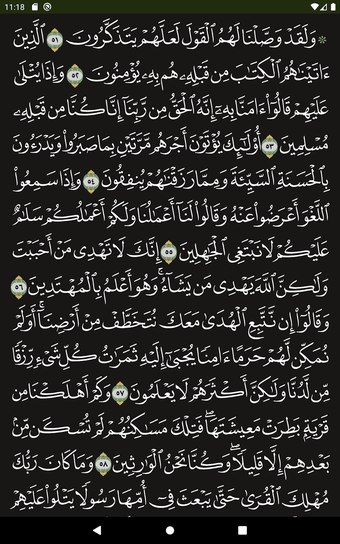 11:18
۞ وَلَقَدْ وَصَّلْنَا لَهُمُ ٱلْقَوْلَ لَعَلَّهُمْ يَتَذَكَّرُونَ ٥١ ٱلَّذِينَ
ءَاتَيْنَٰهُمُ ٱلْكِتَٰبَ مِن قَبْلِهِۦ هُم بِهِۦ يُؤْمِنُونَ ٥٢ وَإِذَا يُتْلَىٰ
عَلَيْهِمْ قَالُوٓا۟ ءَامَنَّا بِهِۦٓ إِنَّهُ ٱلْحَقُّ مِن رَّبِّنَآ إِنَّا كُنَّا مِن قَبْلِهِۦ
مُسْلِمِينَ ٥٣ أُو۟لَٰٓئِكَ يُؤْتَوْنَ أَجْرَهُم مَّرَّتَيْنِ بِمَا صَبَرُوا۟ وَيَدْرَءُونَ
بِٱلْحَسَنَةِ ٱلسَّيِّئَةَ وَمِمَّا رَزَقْنَٰهُمْ يُنفِقُونَ ٥٤ وَإِذَا سَمِعُوا۟
ٱللَّغْوَ أَعْرَضُوا۟ عَنْهُ وَقَالُوا۟ لَنَآ أَعْمَٰلُنَا وَلَكُمْ أَعْمَٰلُكُمْ سَلَٰمٌ
عَلَيْكُمْ لَا نَبْتَغِى ٱلْجَٰهِلِينَ ٥٥ إِنَّكَ لَا تَهْدِى مَنْ أَحْبَبْتَ
وَلَٰكِنَّ ٱللَّهَ يَهْدِى مَن يَشَآءُ ۚ وَهُوَ أَعْلَمُ بِٱلْمُهْتَدِينَ ٥٦
وَقَالُوٓا۟ إِن نَّتَّبِعِ ٱلْهُدَىٰ مَعَكَ نُتَخَطَّفْ مِنْ أَرْضِنَآ ۚ أَوَلَمْ
نُمَكِّن لَّهُمْ حَرَمًا ءَامِنًا يُجْبَىٰٓ إِلَيْهِ ثَمَرَٰتُ كُلِّ شَىْءٍ رِّزْقًا
مِّن لَّدُنَّا وَلَٰكِنَّ أَكْثَرَهُمْ لَا يَعْلَمُونَ ٥٧ وَكَمْ أَهْلَكْنَا مِن
قَرْيَةٍۭ بَطِرَتْ مَعِيشَتَهَا ۖ فَتِلْكَ مَسَٰكِنُهُمْ لَمْ تُسْكَن مِّنۢ
بَعْدِهِمْ إِلَّا قَلِيلًا ۖ وَكُنَّا نَحْنُ ٱلْوَٰرِثِينَ ٥٨ وَمَا كَانَ رَبُّكَ
مُهْلِكَ ٱلْقُرَىٰ حَتَّىٰ يَبْعَثَ فِىٓ أُمِّهَا رَسُولًا يَتْلُوا۟ عَلَيْهِمْ